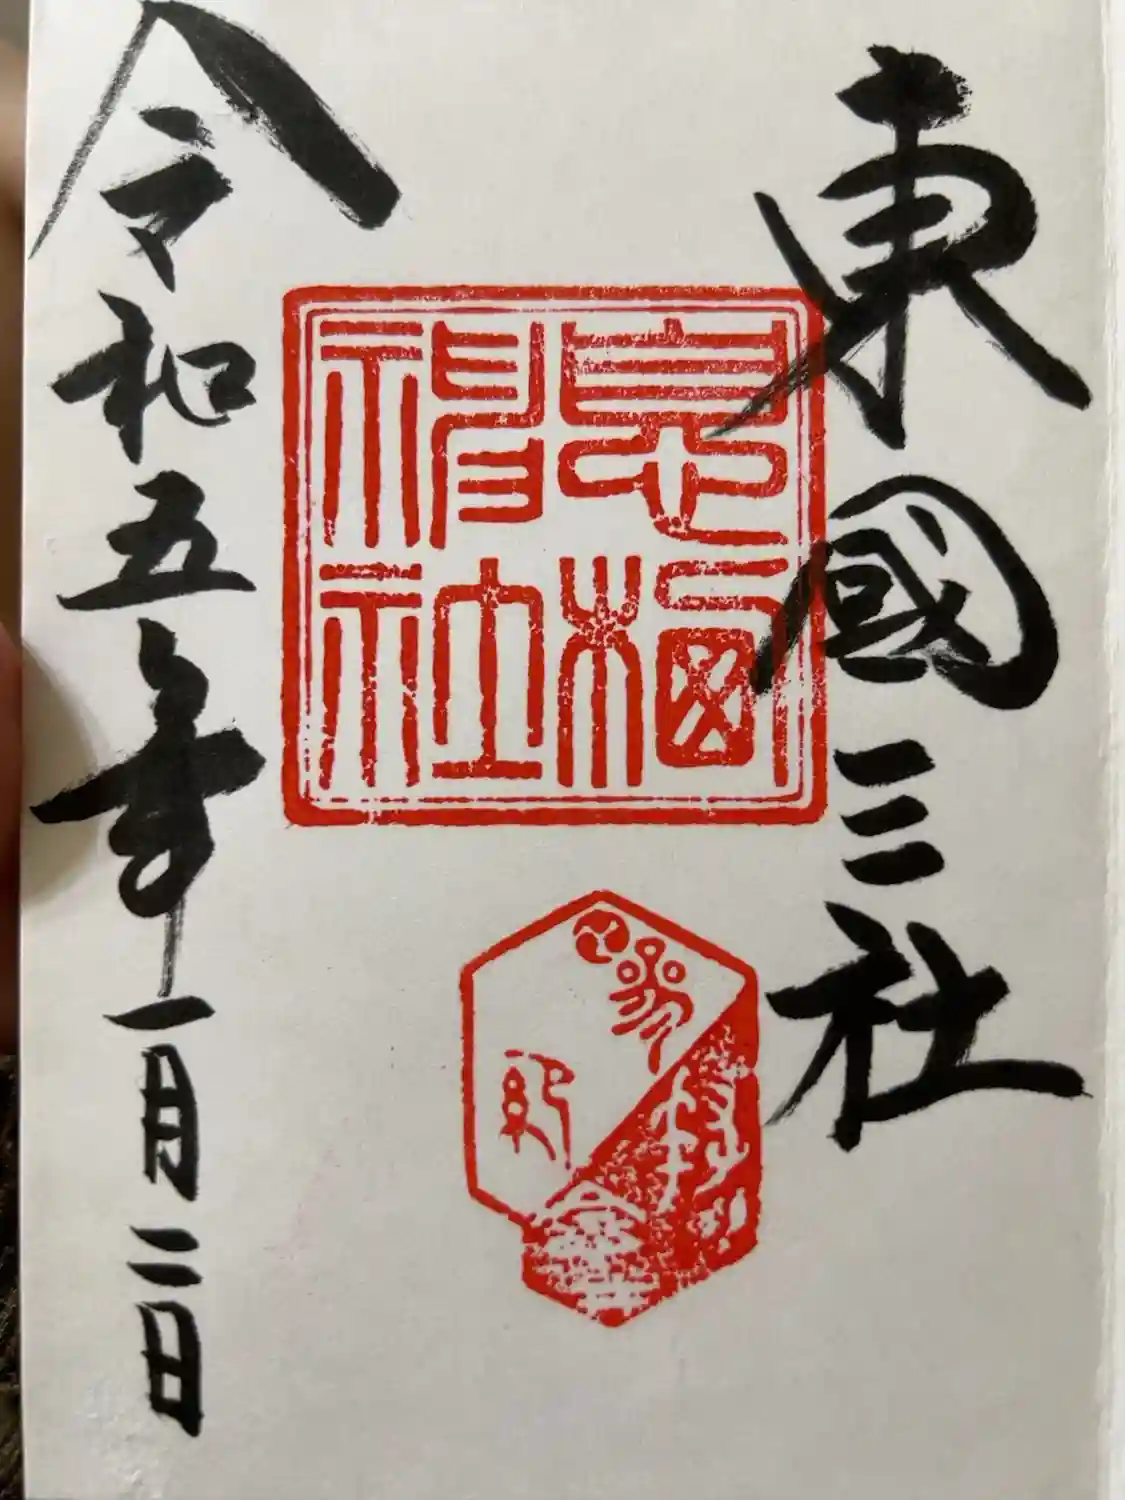 東國三社
息栖
神社
参拝
令和五年一月二日